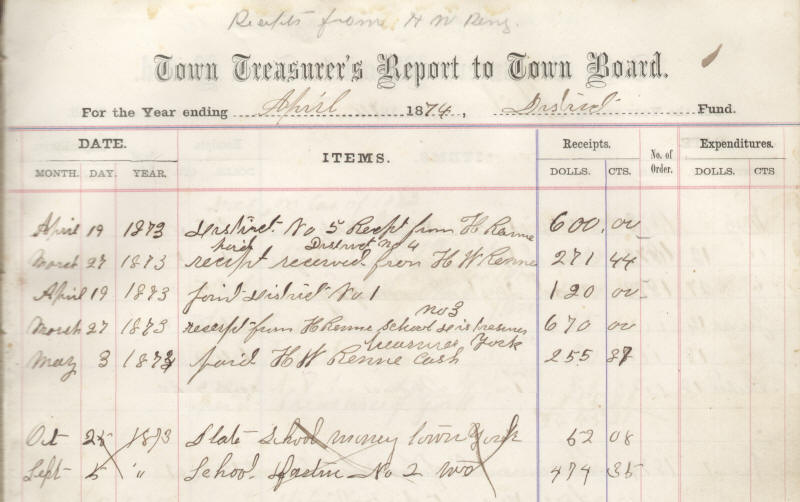 Receipts from H W Reny.
Town Treasurer's Report to Town Board.
For the Year ending April 1874, District Fund.
DATE. ITEMS. Receipts. No. of Order. Expenditures.
MONTH. DAY. YEAR. DOLLS. CTS. DOLLS. CTS
April 19 1873 District No 5 Recept from H Renne 600,00
paid District No 4
March 27 1873 receipt received from H W Renne 271 44
April 19 1873 joint District No 1 120 00
no 3
March 27 1873 receipt from H Renne School 670 00
treasurer York
May 3 1873 paid H W Renne Cash 255 37
Oct 25 1873 State School money town York 52 08
Sept 5 " School No 2 474 35